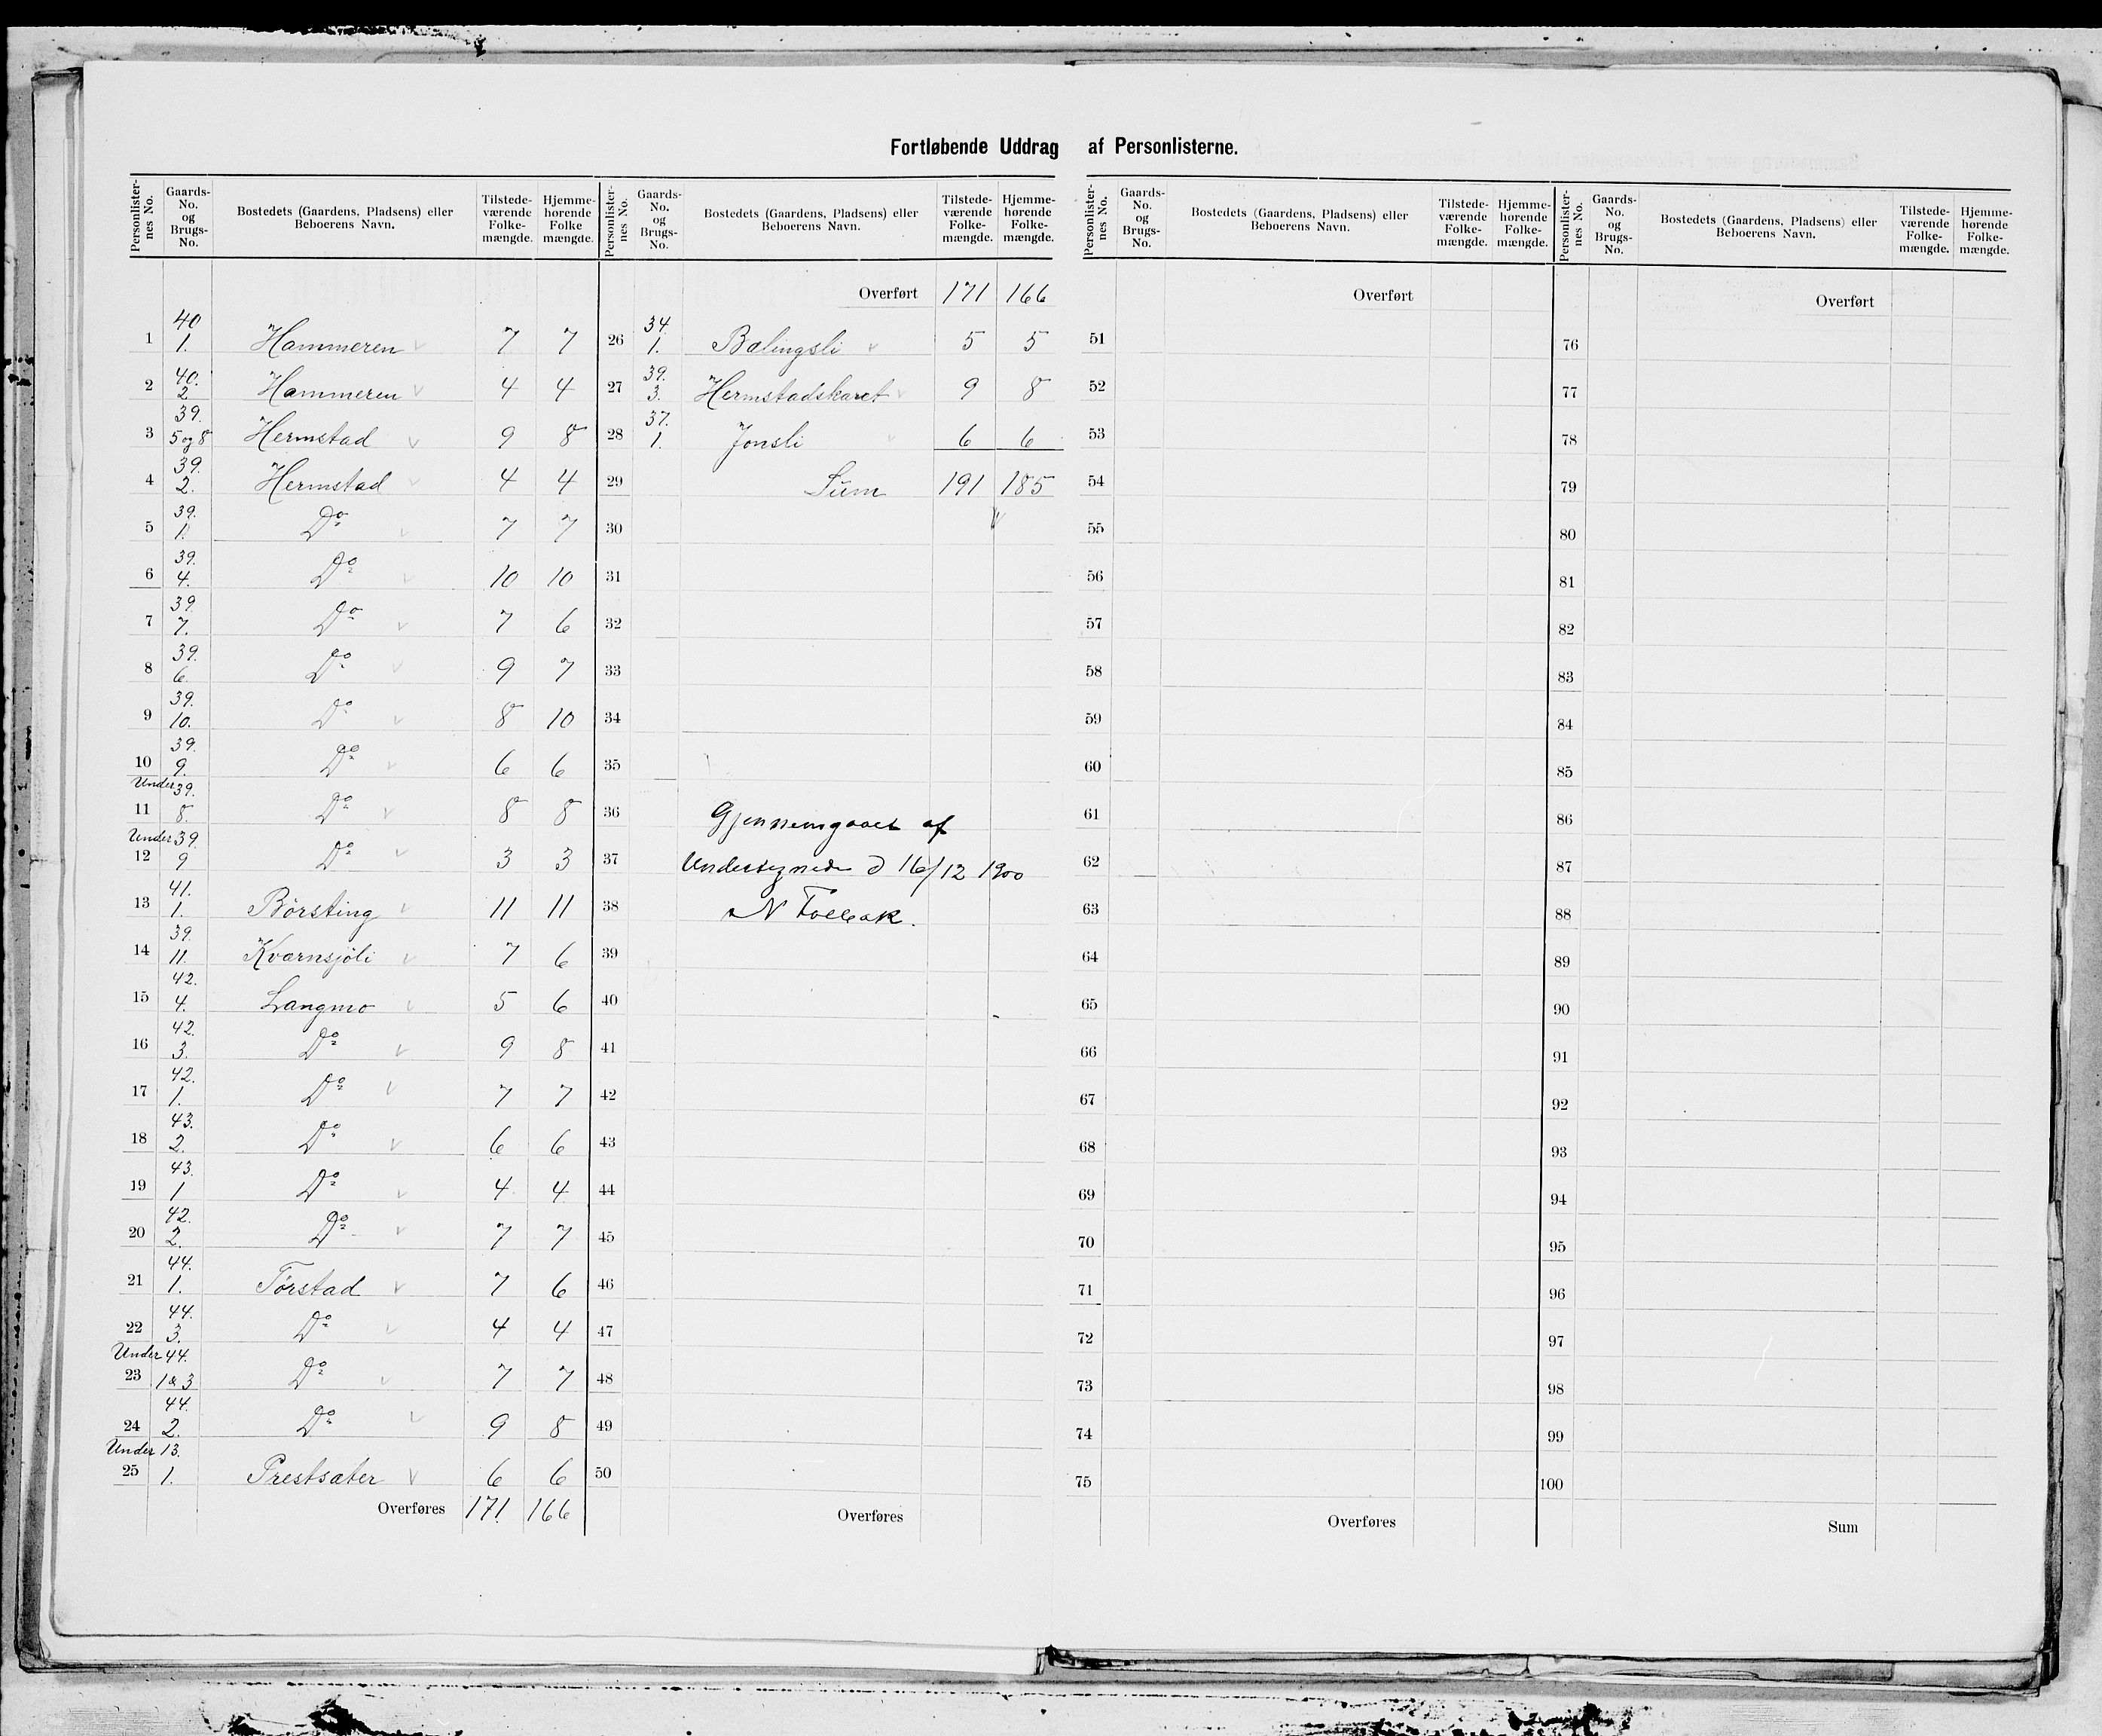 Fortløbende Uddrag af Personlisterne.
Personlister-nes No. | Gaards-No. og Brugs-No. | Bostedets (Gaardens, Pladsens) eller Beboerens Navn. | Tilstede-værende Folke-mængde. | Hjemme-hørende Folke mængde.
1 | 40 1. | Hammeren | 7 | 7
2 | 40. 2 | Hammeren | 4 | 4
3 | 39. 5 og 8 | Hermstad | 9 | 8
4 | 39. 2. | Hermstad | 4 | 4
5 | 39. 1. | Do | 7 | 7
6 | 39. 4. | Do | 10 | 10
7 | 39. 7. | Do | 7 | 6
8 | 39. 6. | Do | 9 | 7
9 | 39. 10. | Do | 8 | 10
10 | 39. 9. | Do | 6 | 6
11 | Under 39. 8. | Do | 8 | 8
12 | Under 39. 9 | Do | 3 | 3
13 | 41. 1. | Börsting | 11 | 11
14 | 39. 11. | Kværnsjöli | 7 | 6
15 | 42. 4. | Langmo | 5 | 6
16 | 42. 3. | Do | 9 | 8
17 | 42. 1. | Do | 7 | 7
18 | 43. 2. | Do | 6 | 6
19 | 43. 1 | Do | 4 | 4
20 | 42. 2. | Do | 7 | 7
21 | 44. 1. | Törstad | 7 | 6
22 | 44. 3. | Do | 4 | 4
23 | Under 44. 1 & 3 | Do | 7 | 7
24 | 44. 2. | Do | 9 | 8
25 | Under 13. 1. | Prestsæter | 6 | 6
Overføres | 171. | 166
Personlister-nes No. | Gaards-No. og Brugs-No. | Bostedets (Gaardens, Pladsens) eller Beboerens Navn. | Tilstede-værende Folke-mængde. | Hjemme-hørende Folke-mængde.
Overført | 171 | 166
26 | 34. 1. | Bælingsli | 5 | 5
27 | 39. 3. | Hermstadskaret | 9 | 8
28 | 37. 1. | Jonsli | 6 | 6
29 | Sum | 191 | 185
30
31
32
33
34
35
36 Gjennemgaaet af
37 Undertegnede d 16/12 1900
38 N
39
40
41
42
43
44
45
46
47
48
49
50
Overføres
Personlister-nes No. | Gaards-No. og Brugs-No. | Bostedets (Gaardens, Pladsens) eller Beboerens Navn. | Tilstede-værende Folke-mængde. | Hjemme-hørende Folke-mængde.
Overført
51
52
53
54
55
56
57
58
59
60
61
62
63
64
65
66
67
68
69
70
71
72
73
74
75
Overføres
Personlister-nes No. | Gaards-No. og Brugs-No. | Bostedets (Gaardens, Pladsens) eller Beboerens Navn. | Tilstede-værende Folke-mængde. | Hjemme-hørende Folke-mængde.
Overført
76
77
78
79
80
81
82
83
84
85
86
87
88
89
90
91
92
93
94
95
96
97
98
99
100
Sum